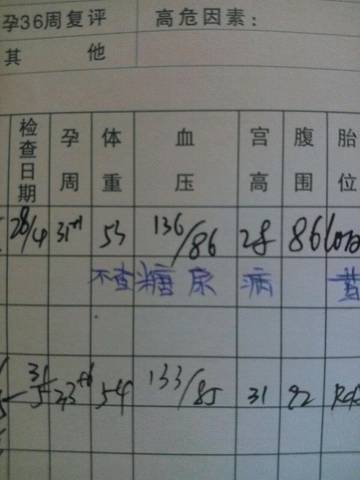 孕36周复评 高危因素：
其 他
检查日期 孕周 体重 血压 宫高 腹围 胎位
28/4 31+1 53 136/86 28 86 LOA
不查糖尿病
31/5 54 133/85 31 92